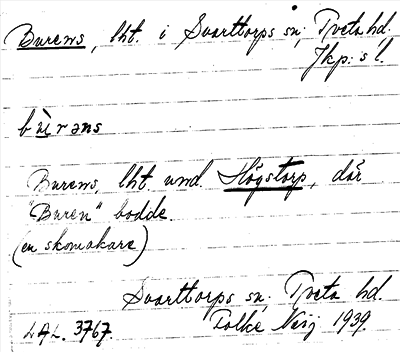 Burens, lht. i Svarttorps sn, Tveta hd.
Jkp:s l.
bu̇rəns
Burens, lht. und. Högstorp, där
"Buren" bodde.
(en skomakare)
Svarttorps sn. Tveta hd.
LAL. 3767. Folke Neij 1939.